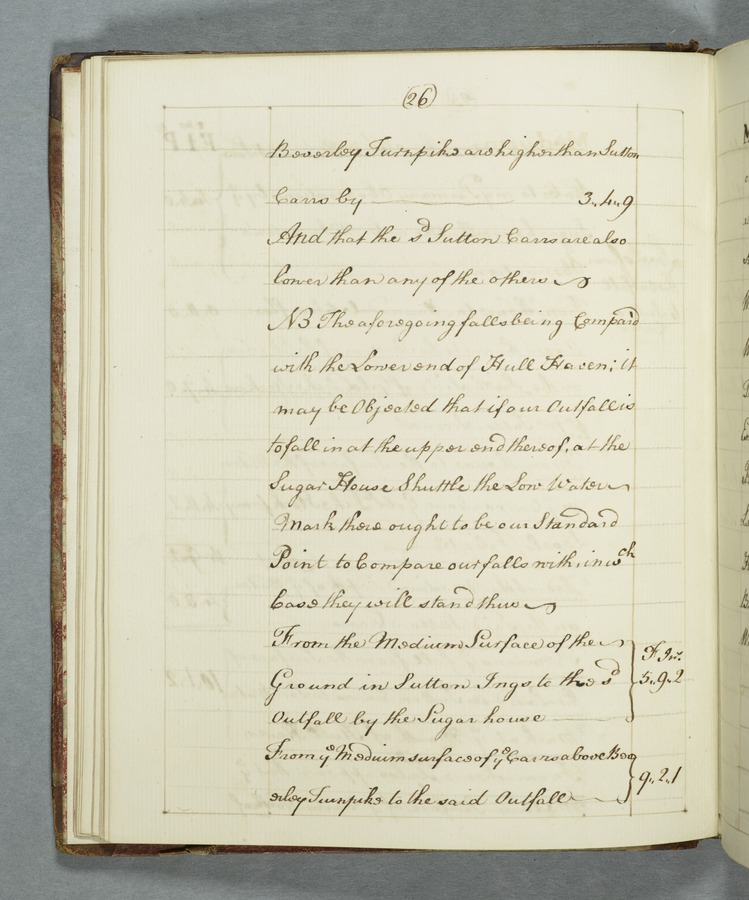 (26)
Beverley Turnpike are higher than Sutton
Carrs by 3..4..9
And that the sd Sutton Carrs are also
lower than any of the others
NB The aforegoing falls being Compar'd
with the Lower end of Hull Haven; it
may be Objected that if our Outfall is
to fall in at the upper end thereof, at the
Sugar House Shuttle the Low Water
Mark there ought to be our Standard
Point to Compare our falls with, in wch
Case they will stand thus
From the Medium Surface of the
Ground in Sutton Ings to the sd
Outfall by the Sugar house
F. In.
5..9..2
From ye Medium surface of ye Carrs above Bev
erley Turnpike to the said Outfall 9..2..1